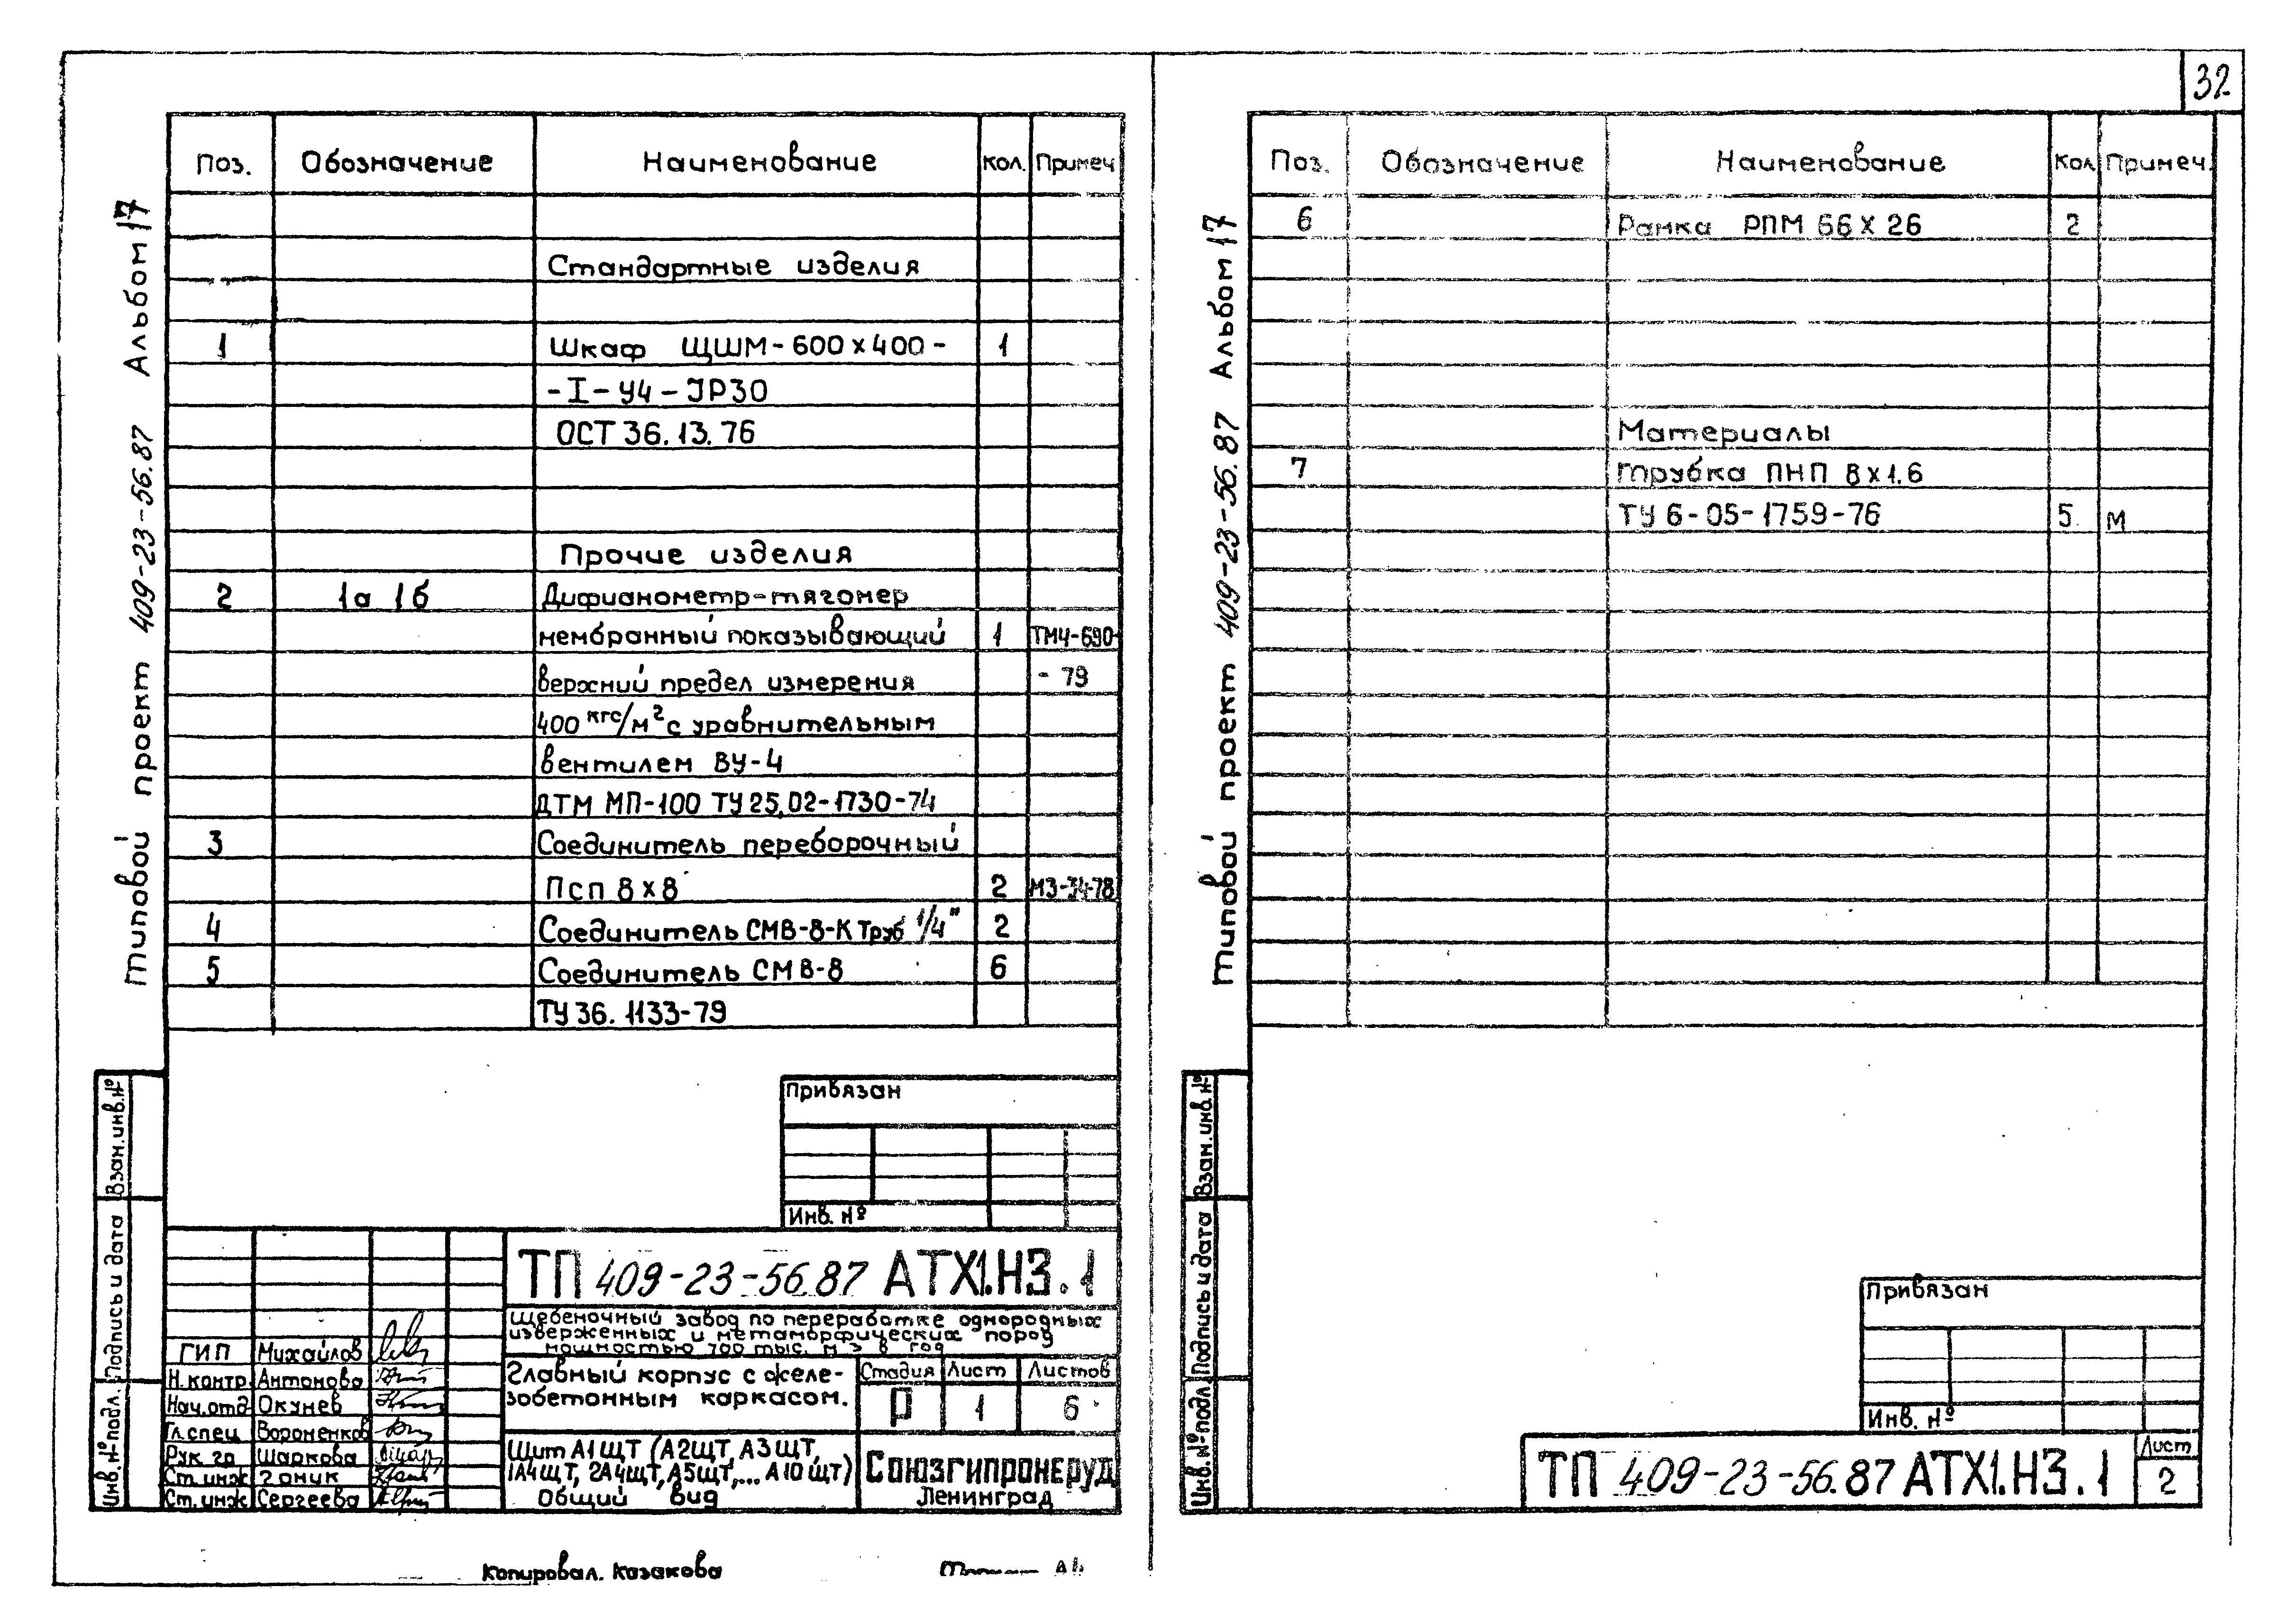 32
Альбом 17
типовой проект 409-23-56.87
Поз. Обозначение Наименование Кол. Примеч
Стандартные изделия
1 Шкаф ЩШМ-600х400- 1
-I-У4-IP30
ОСТ 36.13.76
Прочие изделия
2 1а 1б Дифманометр-тягомер
мембранный показывающий 1 ТМ4-690-
верхний предел измерения -79
400 кгс/м² с уравнительным
вентилем ВУ-4
ДТМ МП-100 ТУ25.02-1730-74
3 Соединитель переборочный
Псп 8х8 2 МЗ-34-78
4 Соединитель СМВ-8-К Труб 1/4" 2
5 Соединитель СМВ-8 6
ТУ36.1133-79
Привязан
Инв. №
Взам.инв.№
Подпись и дата
Инв.№подл.
ТП 409-23-56.87 АТХ1.Н3.1
Щебеночный завод по переработке однородных
изверженных и метаморфических пород
мощностью 700 тыс. м3 в год
ГИП Михайлов
Н.контр Антонова
Нач.отд Окунев
Гл.спец Вороненков
Рук.гр Шаркова
Ст.инж Гоник
Ст.инж Сергеева
Главный корпус с желе-
зобетонным каркасом.
Стадия Лист Листов
Р 1 6
Щит А1ЩТ (А2ЩТ, А3ЩТ,
1А4ЩТ, 2А4ЩТ, А5ЩТ,... А10ЩТ)
Общий вид
Союзгипронеруд
Ленинград
Копировал. Казакова
Альбом 17
типовой проект 409-23-56.87
Поз. Обозначение Наименование Кол Примеч.
6 Рамка РПМ 66х26 2
Материалы
7 Трубка ПНП 8х1.6
ТУ 6-05-1759-76 5 м
Привязан
Инв. №
Взам.инв.№
Подпись и дата
Инв.№подл.
ТП 409-23-56.87 АТХ1.Н3.1
Лист
2